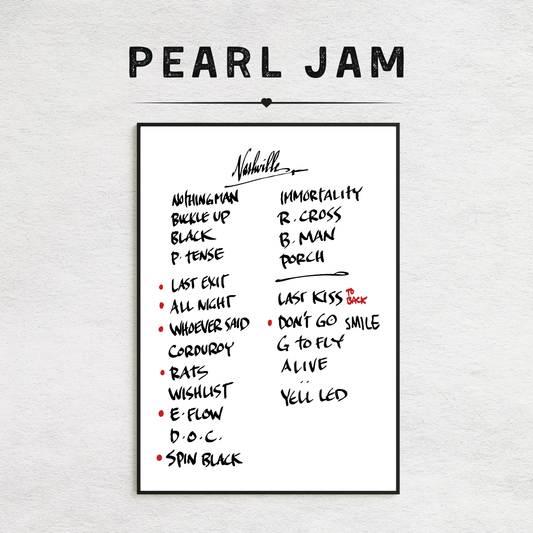 PEARL JAM
Nashville
NOTHINGMAN
BUCKLE UP
BLACK
P. TENSE
LAST EXIT
ALL NIGHT
WHOEVER SAID
CORDUROY
RATS
WISHLIST
E. FLOW
D.O.C.
SPIN BLACK
IMMORTALITY
R. CROSS
B. MAN
PORCH
LAST KISS TO BACK
DON'T GO SMILE
G TO FLY
ALIVE
YELL LED